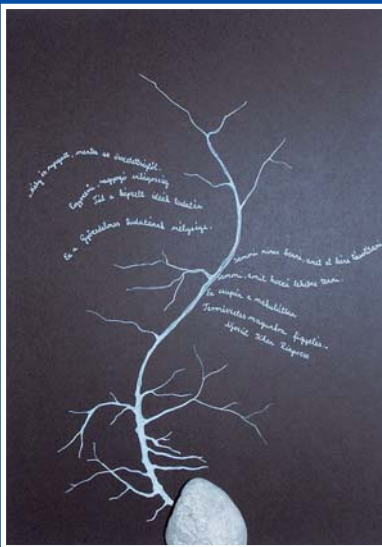 Mély és nyugodt, mentes az összetettségtől.
Egyszerű, ragyogó világosság
Túl a képzelt ideák tudatán
Ez a Győzedelmes tudatának mélysége.
Semmi nincs benne, amit el kéne távolítani
Semmi, amit hozzá lehetne tenni.
Ez csupán a makulátlan
Természetes magunkba figyelés.
Khen Rinpocse